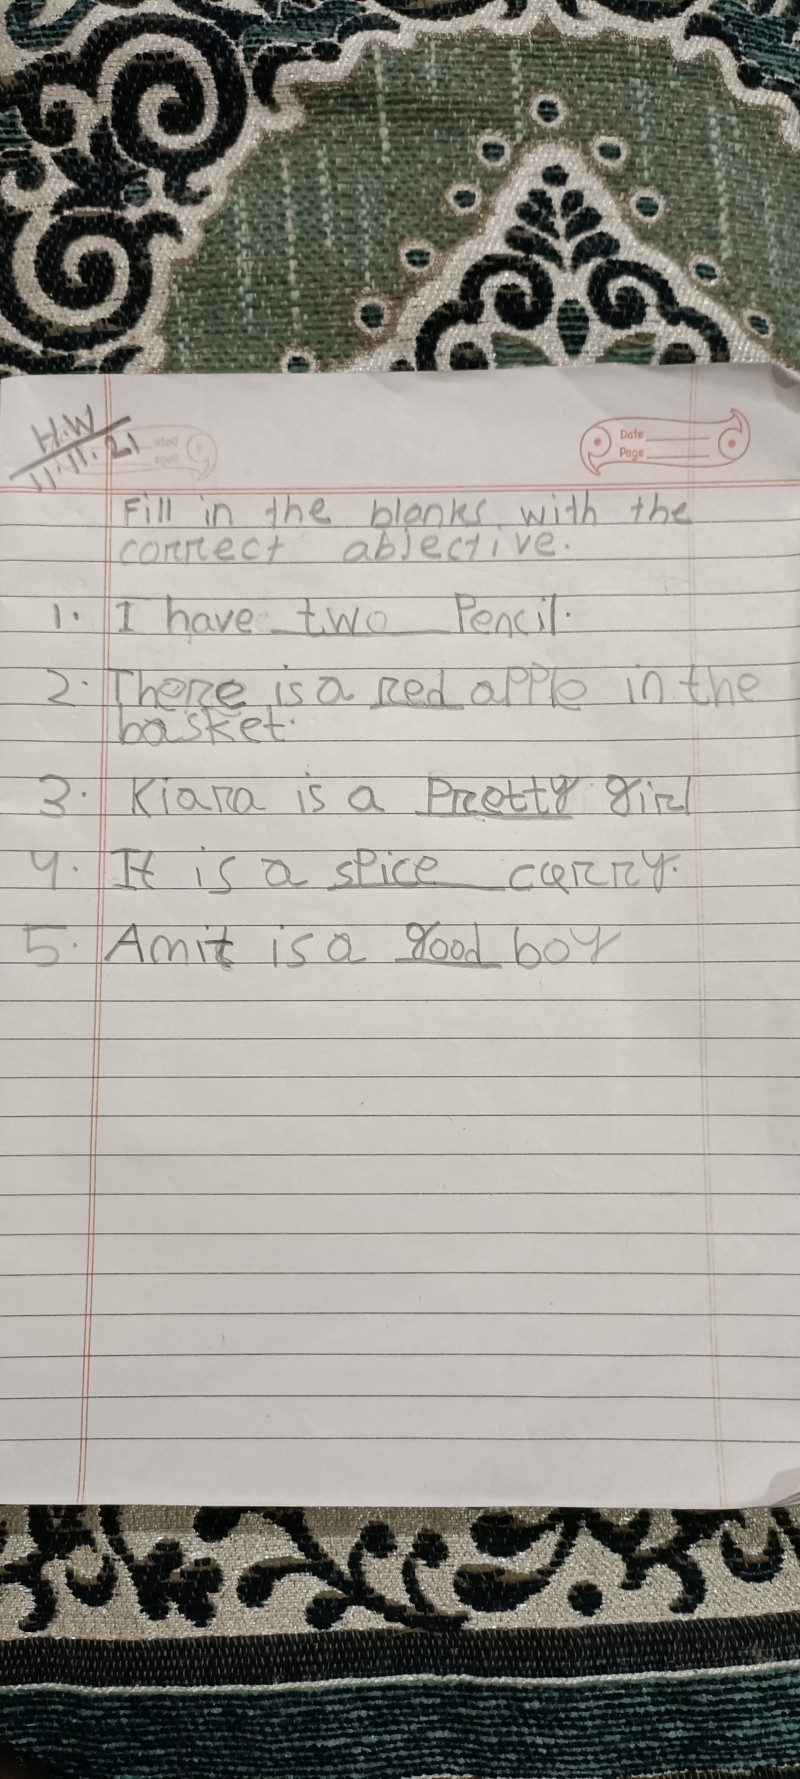 H.W
11.11.21
Date
Page
Fill in the blanks with the
correct abjective.
1. I have two Pencil.
2. There is a red apple in the
basket.
3. Kiara is a Pretty girl
4. It is a spice carry.
5. Amit is a good boy